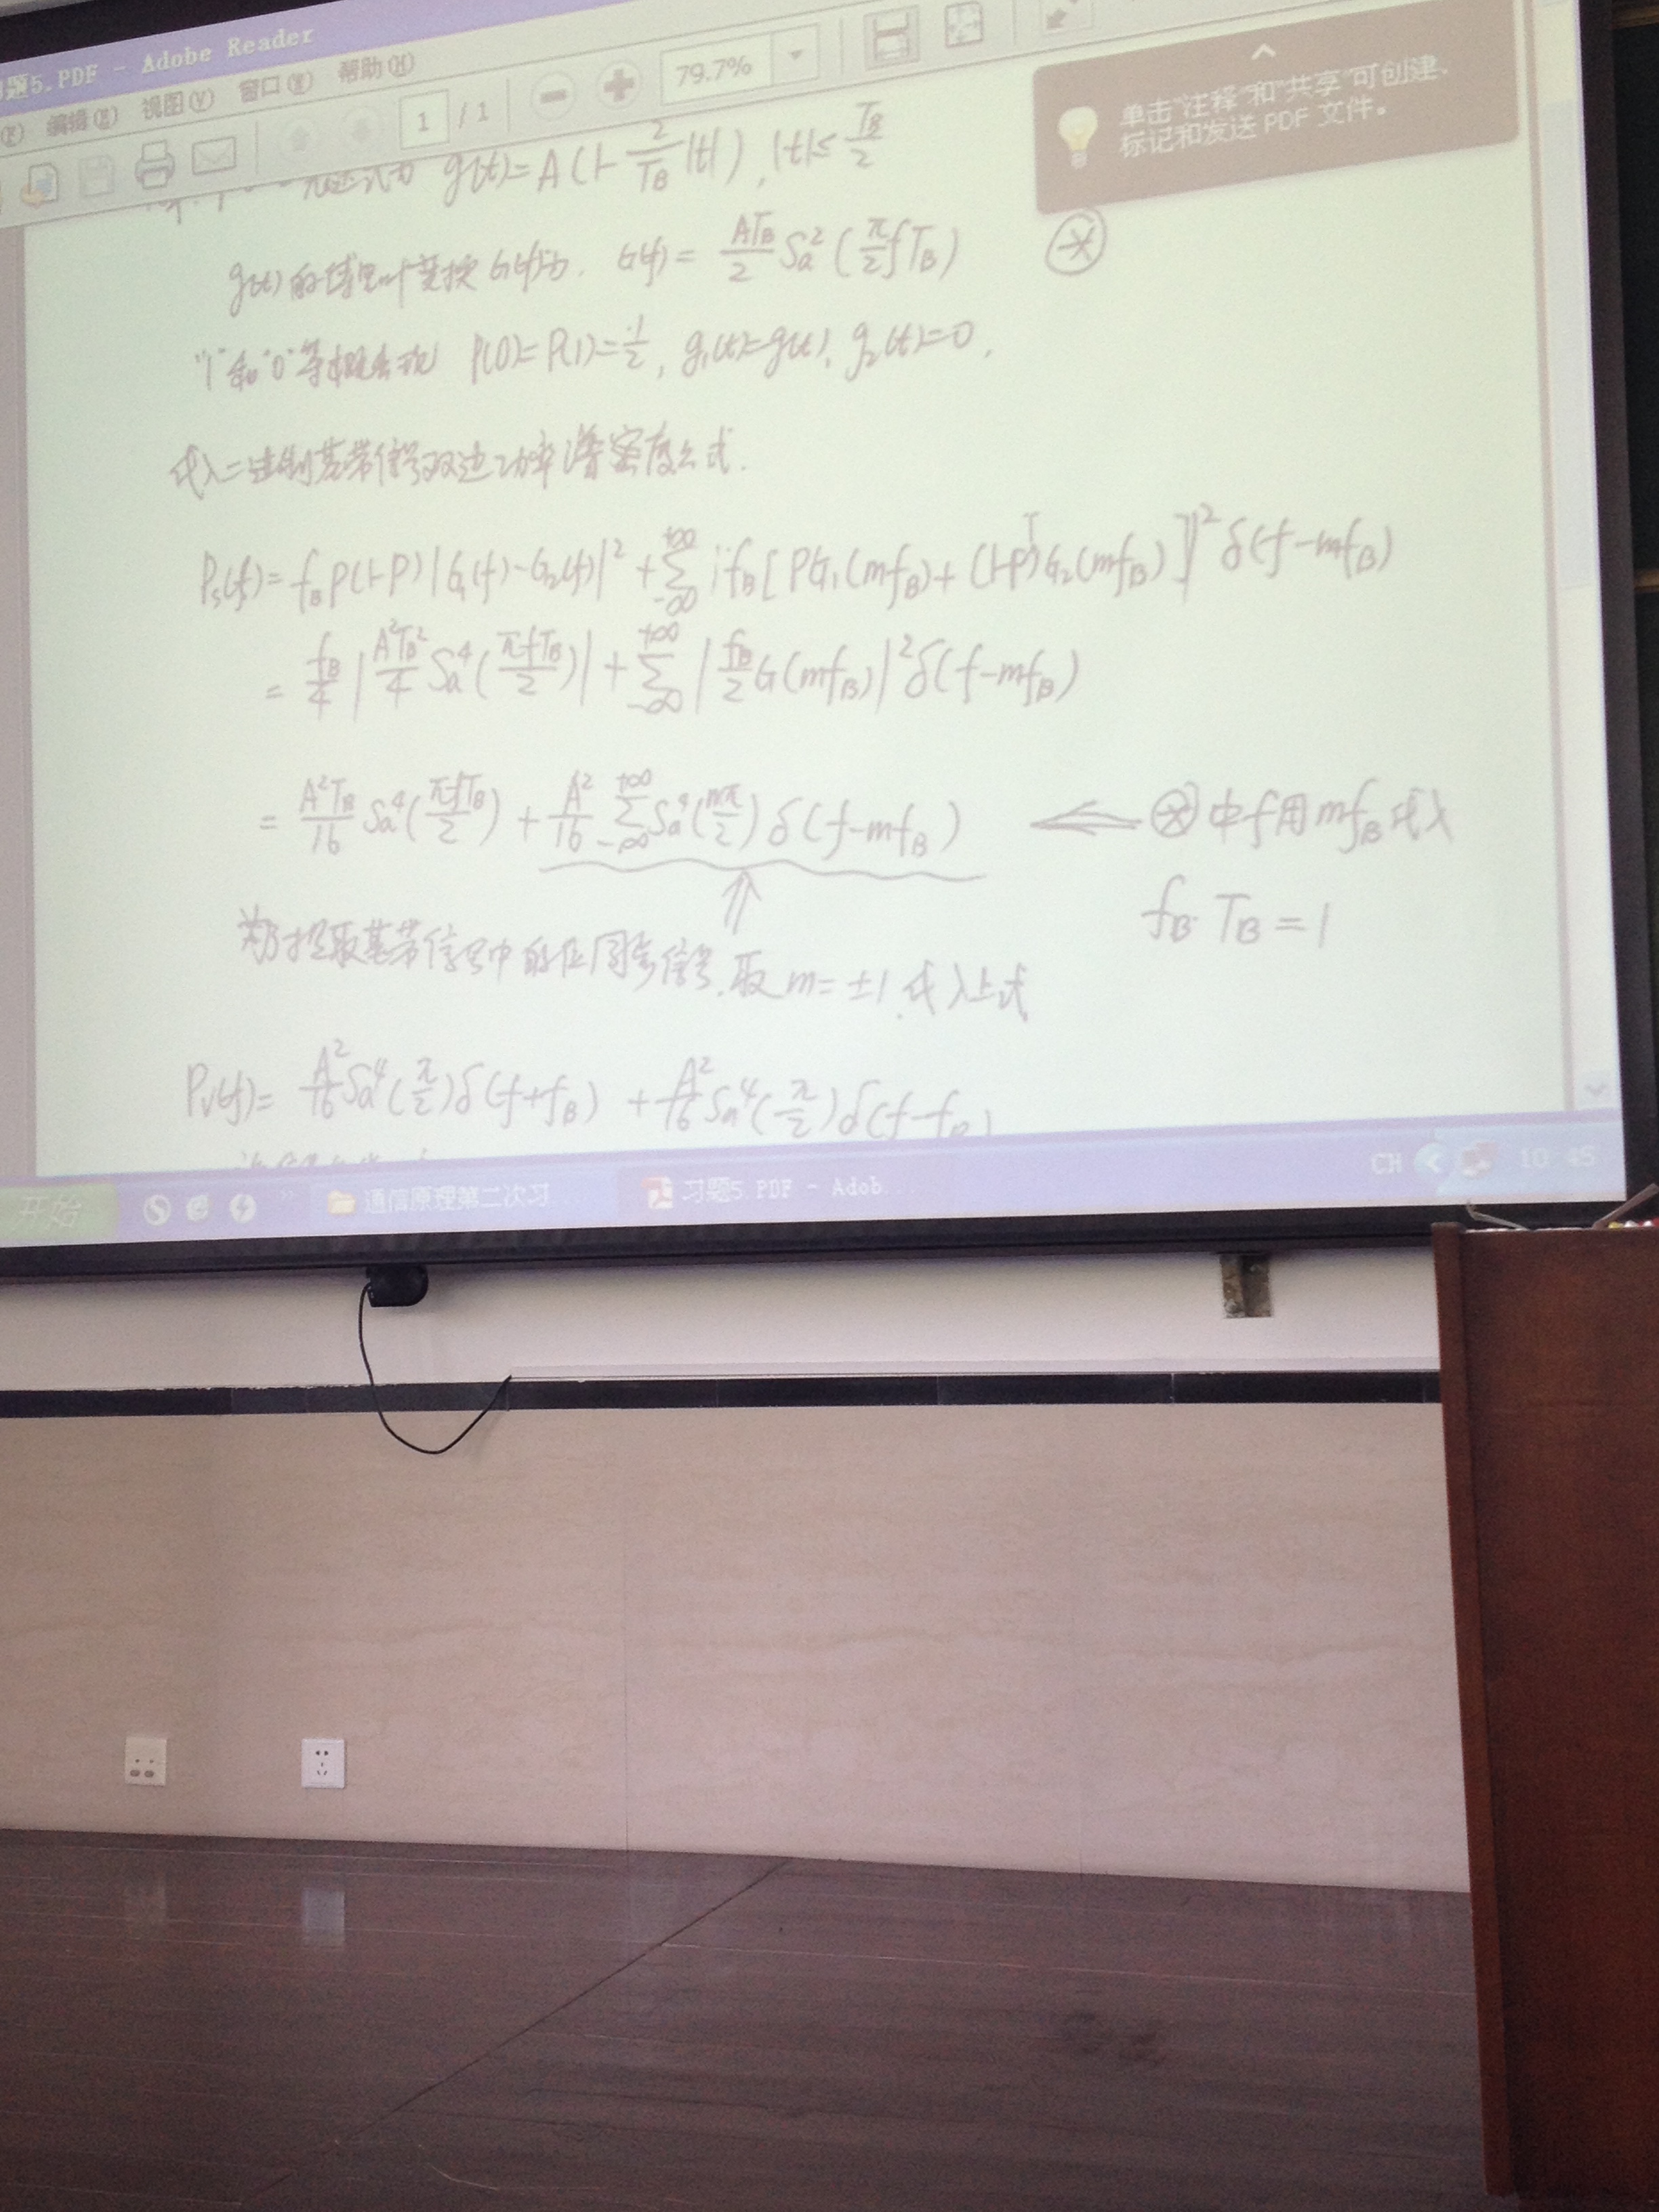 题5.PDF - Adobe Reader
编辑(E) 视图(V) 窗口(W) 帮助(H)
1 / 1 79.7%
单击“注释”和“共享”可创建、
标记和发送 PDF 文件。
g(t)=A(1-2/T_B|t|), |t|≤T_B/2
g(t)的傅里叶变换G(f)为. G(f)= AT_B/2 Sa²(π/2 fT_B) ⊛
"1"和"0"等概出现 P(0)=P(1)=1/2, g₁(t)=g(t), g₂(t)=0,
代入二进制基带信号双边功率谱密度公式.
P_s(f)= f_B P(1-P)|G₁(f)-G₂(f)|² + Σ_{-∞}^{+∞} |f_B[PG₁(mf_B)+(1-P)G₂(mf_B)]|² δ(f-mf_B)
= f_B/4 |A²T_B²/4 Sa⁴(πfT_B/2)| + Σ_{-∞}^{+∞} |f_B/2 G(mf_B)|² δ(f-mf_B)
= A²T_B/16 Sa⁴(πfT_B/2) + A²/16 Σ_{-∞}^{+∞} Sa⁴(mπ/2) δ(f-mf_B) ⇐ ⊛中f用mf_B代入
f_B·T_B=1
⇑
提取基带信号中的位同步信号,取m=±1,代入上式
P_v(f)= A²/16 Sa⁴(π/2)δ(f+f_B) + A²/16 Sa⁴(π/2)δ(f-f_B)
开始 通信原理第二次习 习题5.PDF - Adob... CH 10:45